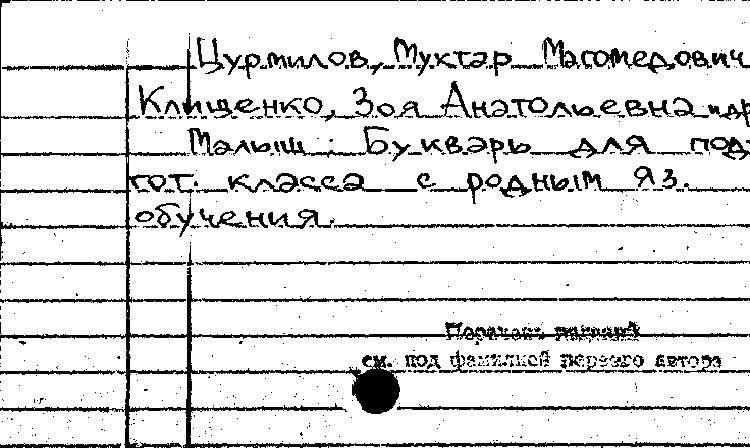 Цурмилов, Муктар Магомедович
Клищенко, Зоя Анатольевна и др
Малыш : Букварь для под-
гот. класса с родным яз.
обучения.
см. под фамилией первого автора